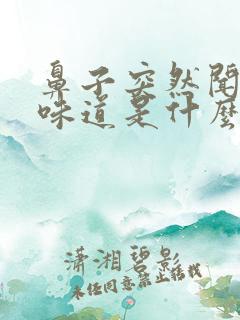 鼻子突然闻
味道是什么
潇湘碧影
未经同意禁止转载